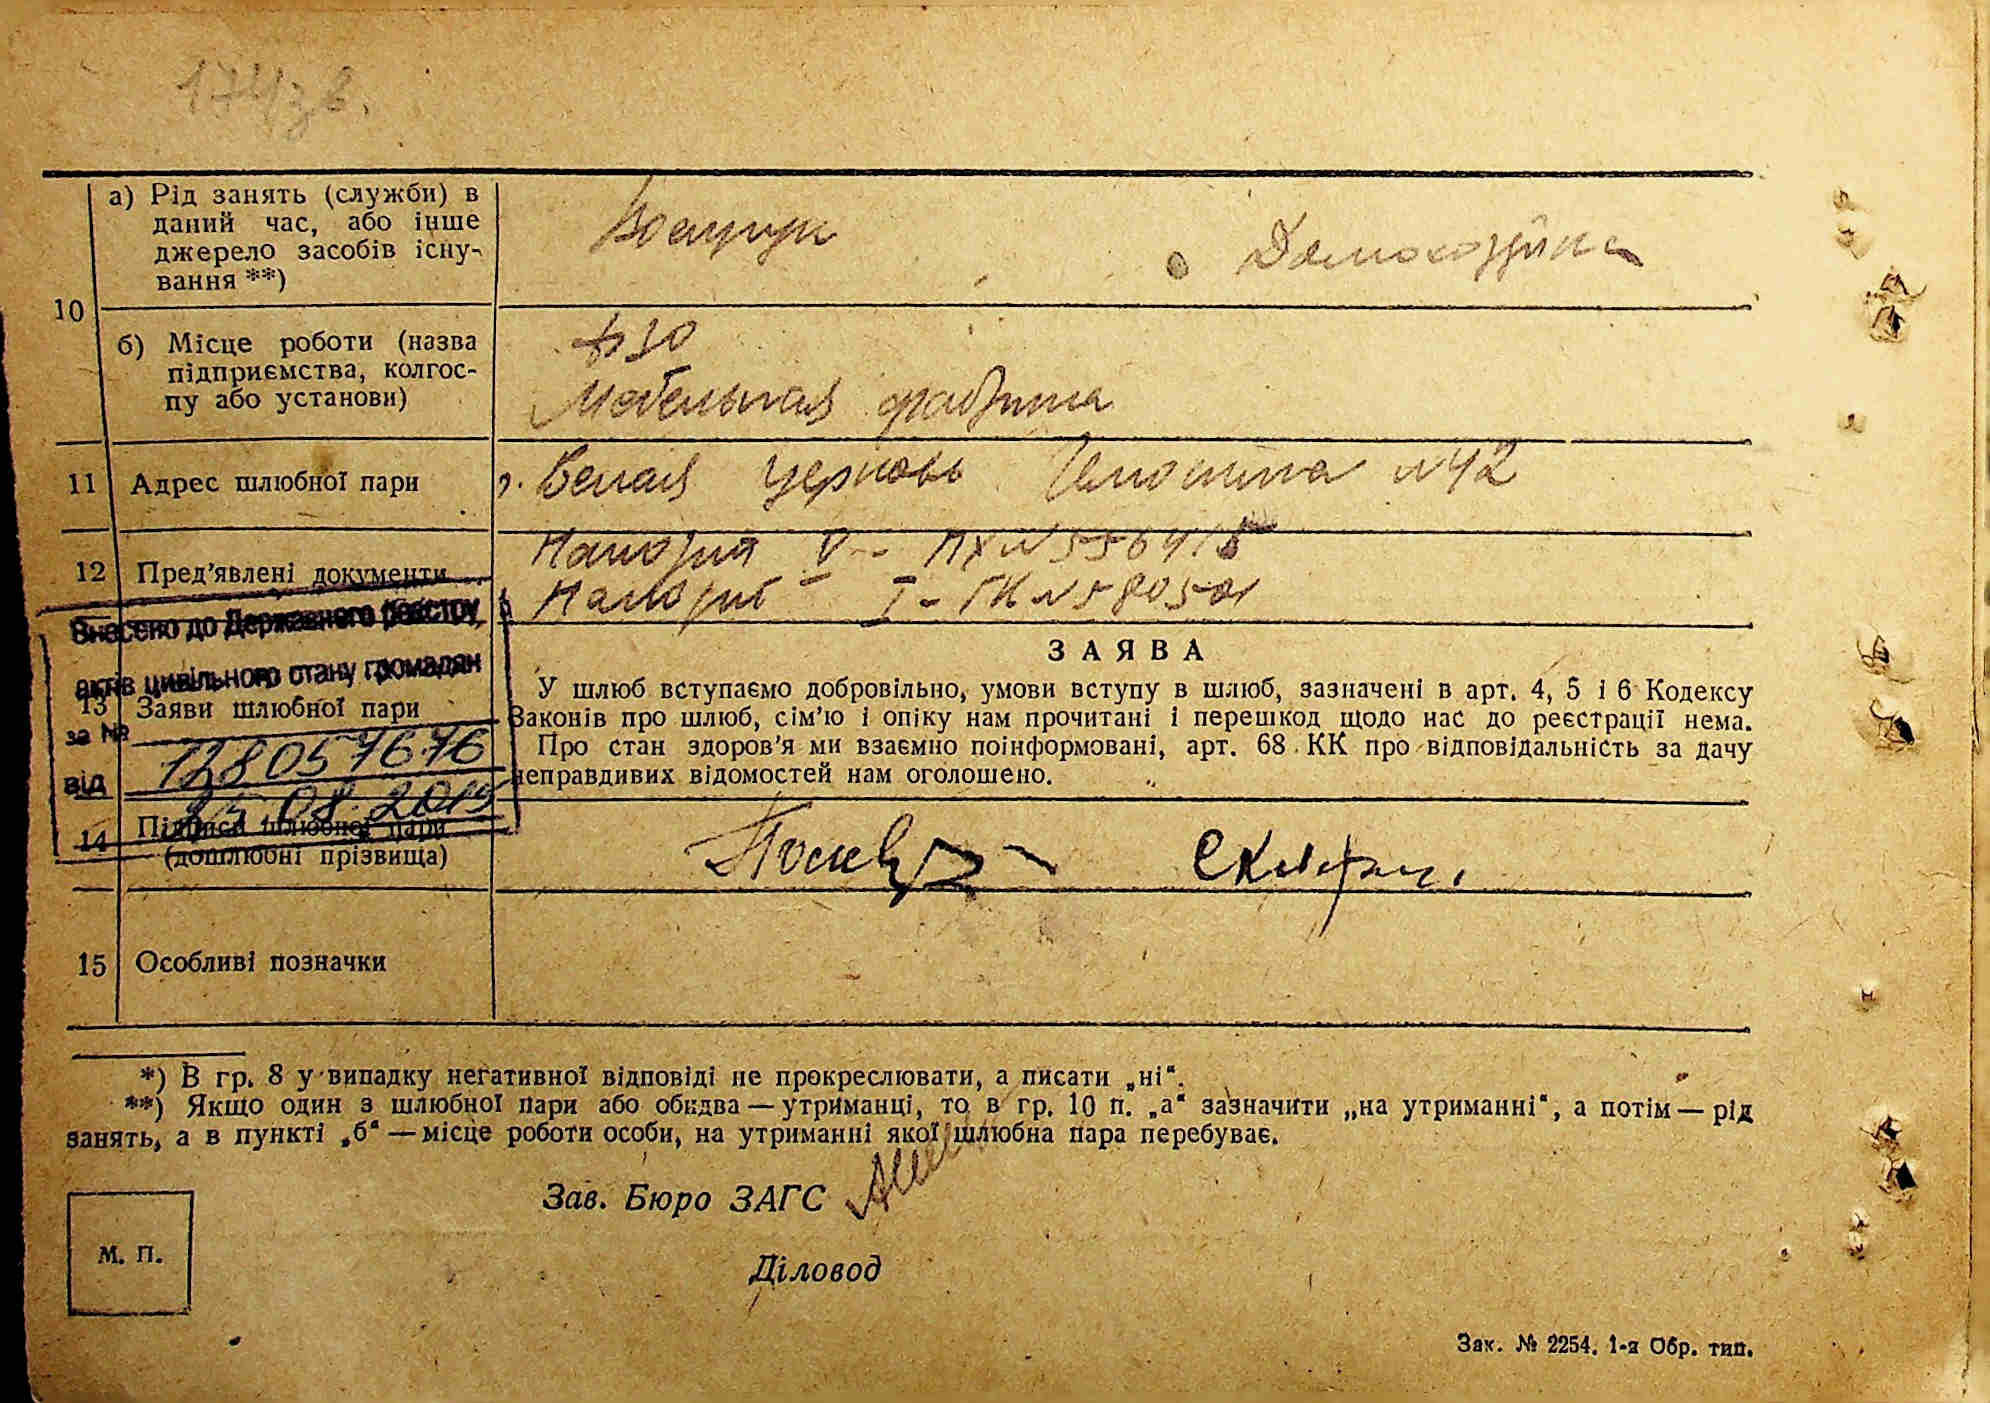 а) Рід занять (служби) в
даний час, або інше
джерело засобів існу-
вання **)
Домохозяйка
10
б) Місце роботи (назва
підприємства, колгос-
пу або установи)
Мебельная фабрика
11 Адрес шлюбної пари
г. Белая Церковь №42
12 Пред’явлені документи
V
I - № 580501
Внесено до Державного реєстру
актів цивільного стану громадян
за №
від
13 Заяви шлюбної пари
ЗАЯВА
У шлюб вступаємо добровільно, умови вступу в шлюб, зазначені в арт. 4, 5 і 6 Кодексу
Законів про шлюб, сім’ю і опіку нам прочитані і перешкод щодо нас до реєстрації нема.
Про стан здоров’я ми взаємно поінформовані, арт. 68 КК про відповідальність за дачу
неправдивих відомостей нам оголошено.
14 Підписи шлюбної пари
(дошлюбні прізвища)
15 Особливі позначки
*) В гр. 8 у випадку негативної відповіді не прокреслювати, а писати „ні“.
**) Якщо один з шлюбної пари або обидва — утриманці, то в гр. 10 п. „а“ зазначити „на утриманні“, а потім — рід
занять, а в пункті „б“ — місце роботи особи, на утриманні якої шлюбна пара перебуває.
Зав. Бюро ЗАГС
М. П.
Діловод
Зак. № 2254. 1-я Обр. тип.